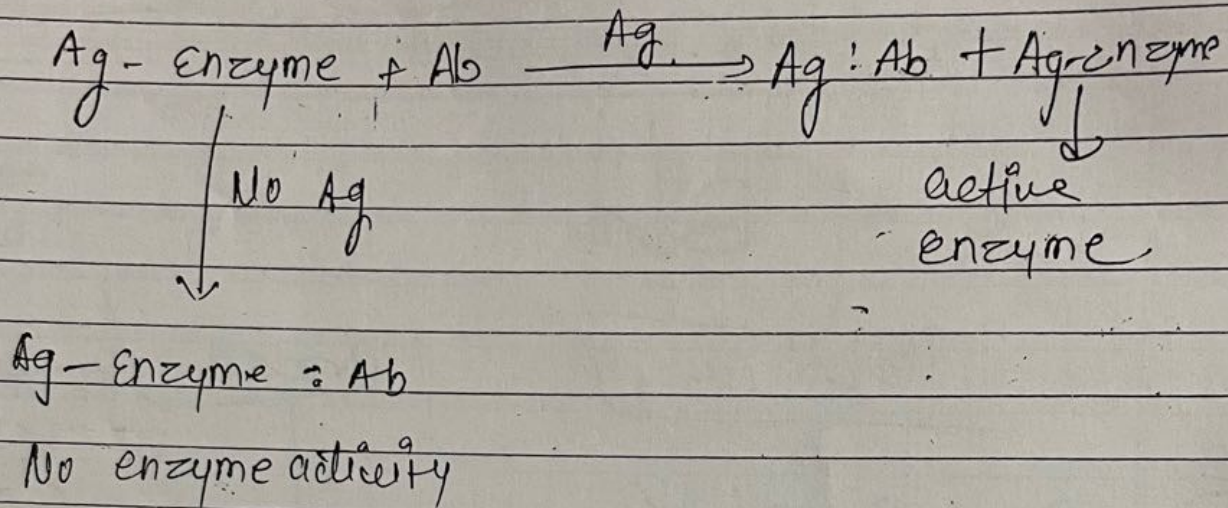 Ag - Enzyme + Ab —Ag→ Ag : Ab + Ag-enzyme
No Ag
active
enzyme
Ag - Enzyme : Ab
No enzyme activity